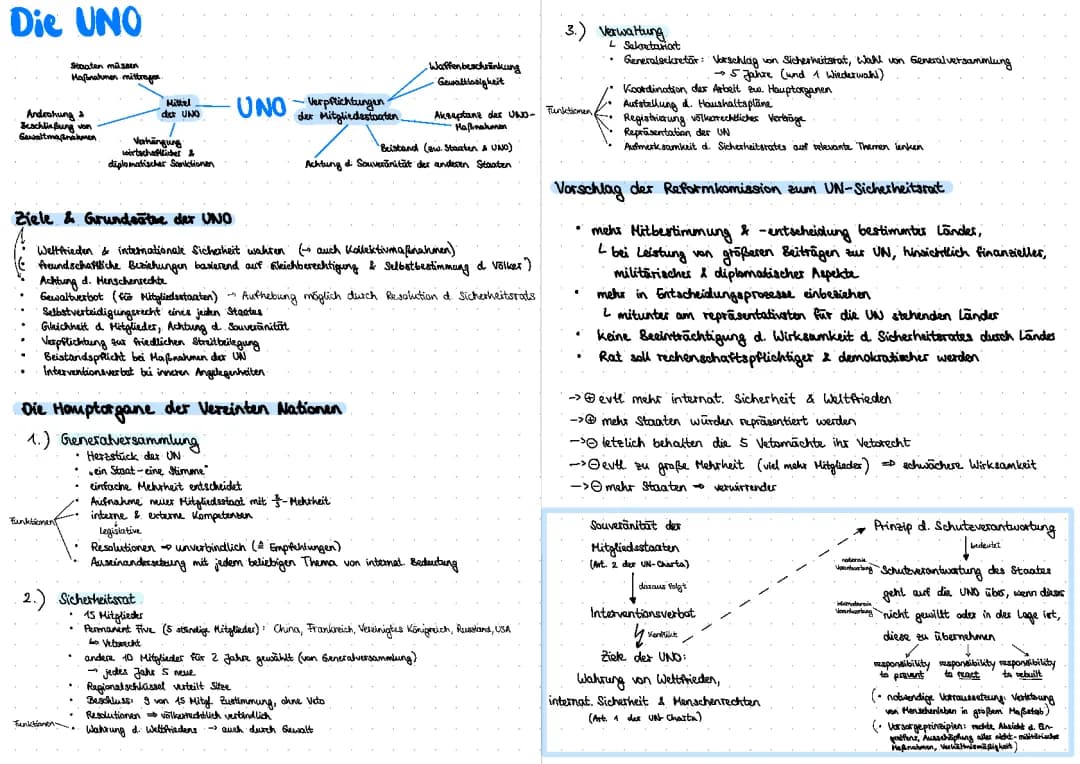 Die UNO
Staaten müssen
Maßnahmen mittragen
Androhung &
Beschließung von
Gewaltmaßnahmen
Mittel
der UNO
Verhängung
wirtschaftlicher &
diplomatischer Sanktionen
UNO
Verpflichtungen
der Mitgliedsstaaten
Waffenbeschränkung
Gewaltlosigkeit
Akzeptanz der UNO-
Maßnahmen
Beistand (zw. Staaten & UNO)
Achtung d. Souveränität der anderen Staaten
Ziele & Grundsätze der UNO
• Weltfrieden & internationale Sicherheit wahren (→ auch Kollektivmaßnahmen)
• freundschaftliche Beziehungen basierend auf Gleichberechtigung & Selbstbestimmung d Völker")
• Achtung d. Menschenrechte
• Gewaltverbot (für Mitgliedsstaaten) → Aufhebung möglich durch Resolution d. Sicherheitsrats
• Selbstverteidigungsrecht eines jeden Staates
• Gleichheit d. Mitglieder, Achtung d. Souveränität
• Verpflichtung zur friedlichen Streitbeilegung
• Beistandspflicht bei Maßnahmen der UN
• Interventionsverbot bei inneren Angelegenheiten
Die Hauptorgane der Vereinten Nationen
1.) Generalversammlung
• Herzstück der UN
• „ein Staat-eine Stimme"
• einfache Mehrheit entscheidet
Funktionen
• Aufnahme neuer Mitgliedsstaat mit ⅔-Mehrheit
• interne & externe Kompetenzen
Legislative
• Resolutionen → unverbindlich (≙ Empfehlungen)
• Auseinandersetzung mit jedem beliebigen Thema von internat. Bedeutung
2.) Sicherheitsrat
• 15 Mitglieder
• Permanent Five (5 ständige Mitglieder): China, Frankreich, Vereinigtes Königreich, Russland, USA
↳ Vetorecht
• andere 10 Mitglieder für 2 Jahre gewählt (von Generalversammlung)
→ jedes Jahr 5 neue
• Regionalschlüssel verteilt Sitze
• Beschluss: 9 von 15 Mitgl. Zustimmung, ohne Veto
• Resolutionen ⇒ völkerrechtlich verbindlich
Funktionen • Wahrung d. Weltfriedens → auch durch Gewalt
3.) Verwaltung
↳ Sekretariat
• Generalsekretär: Vorschlag von Sicherheitsrat, Wahl von Generalversammlung
→ 5 Jahre (und 1 Wiederwahl)
Funktionen
• Koordination der Arbeit zw. Hauptorganen
• Aufstellung d. Haushaltspläne
• Registrierung völkerrechtlicher Verträge
• Repräsentation der UN
• Aufmerksamkeit d. Sicherheitsrates auf relevante Themen lenken
Vorschlag der Reformkomission zum UN-Sicherheitsrat
• mehr Mitbestimmung & -entscheidung bestimmter Länder,
↳ bei Leistung von größeren Beiträgen zur UN, hinsichtlich finanzieller,
militärischer & diplomatischer Aspekte
• mehr in Entscheidungsprozesse einbeziehen
↳ mitunter am repräsentativsten für die UN stehenden Länder
• keine Beeinträchtigung d. Wirksamkeit d. Sicherheitsrates durch Länder
• Rat soll rechenschaftspflichtiger & demokratischer werden
→ ⊕ evtl mehr internat. Sicherheit & Weltfrieden
→ ⊕ mehr Staaten würden repräsentiert werden
→ ⊖ letzlich behalten die 5 Vetomächte ihr Vetorecht
→ ⊖ evtl zu große Mehrheit (viel mehr Mitglieder) ⇒ schwächere Wirksamkeit
→ ⊖ mehr Staaten ⇒ verwirrender
Souveränität der
Mitgliedsstaaten
(Art. 2 der UN-Charta)
daraus folgt
Interventionsverbot
Konflikt
Ziele der UNO:
Wahrung von Weltfrieden,
internat. Sicherheit & Menschenrechten
(Art. 1 der UN-Charta)
Prinzip d. Schutzverantwortung
bedeutet
nationale
Verantwortung
Schutzverantwortung des Staates
geht auf die UNO über, wenn dieser
internationale
Verantwortung
nicht gewillt oder in der Lage ist,
diese zu übernehmen
responsibility
to prevent
responsibility
to react
responsibility
to rebuilt
(• notwendige Vorraussetzung: Verletzung
von Menschenleben in großem Maßstab)
(• Vorsorgeprinzipien: rechte Absicht d. Ein-
greifens, Ausschöpfung aller nicht-militärischer
Maßnahmen, Verhältnismäßigkeit)